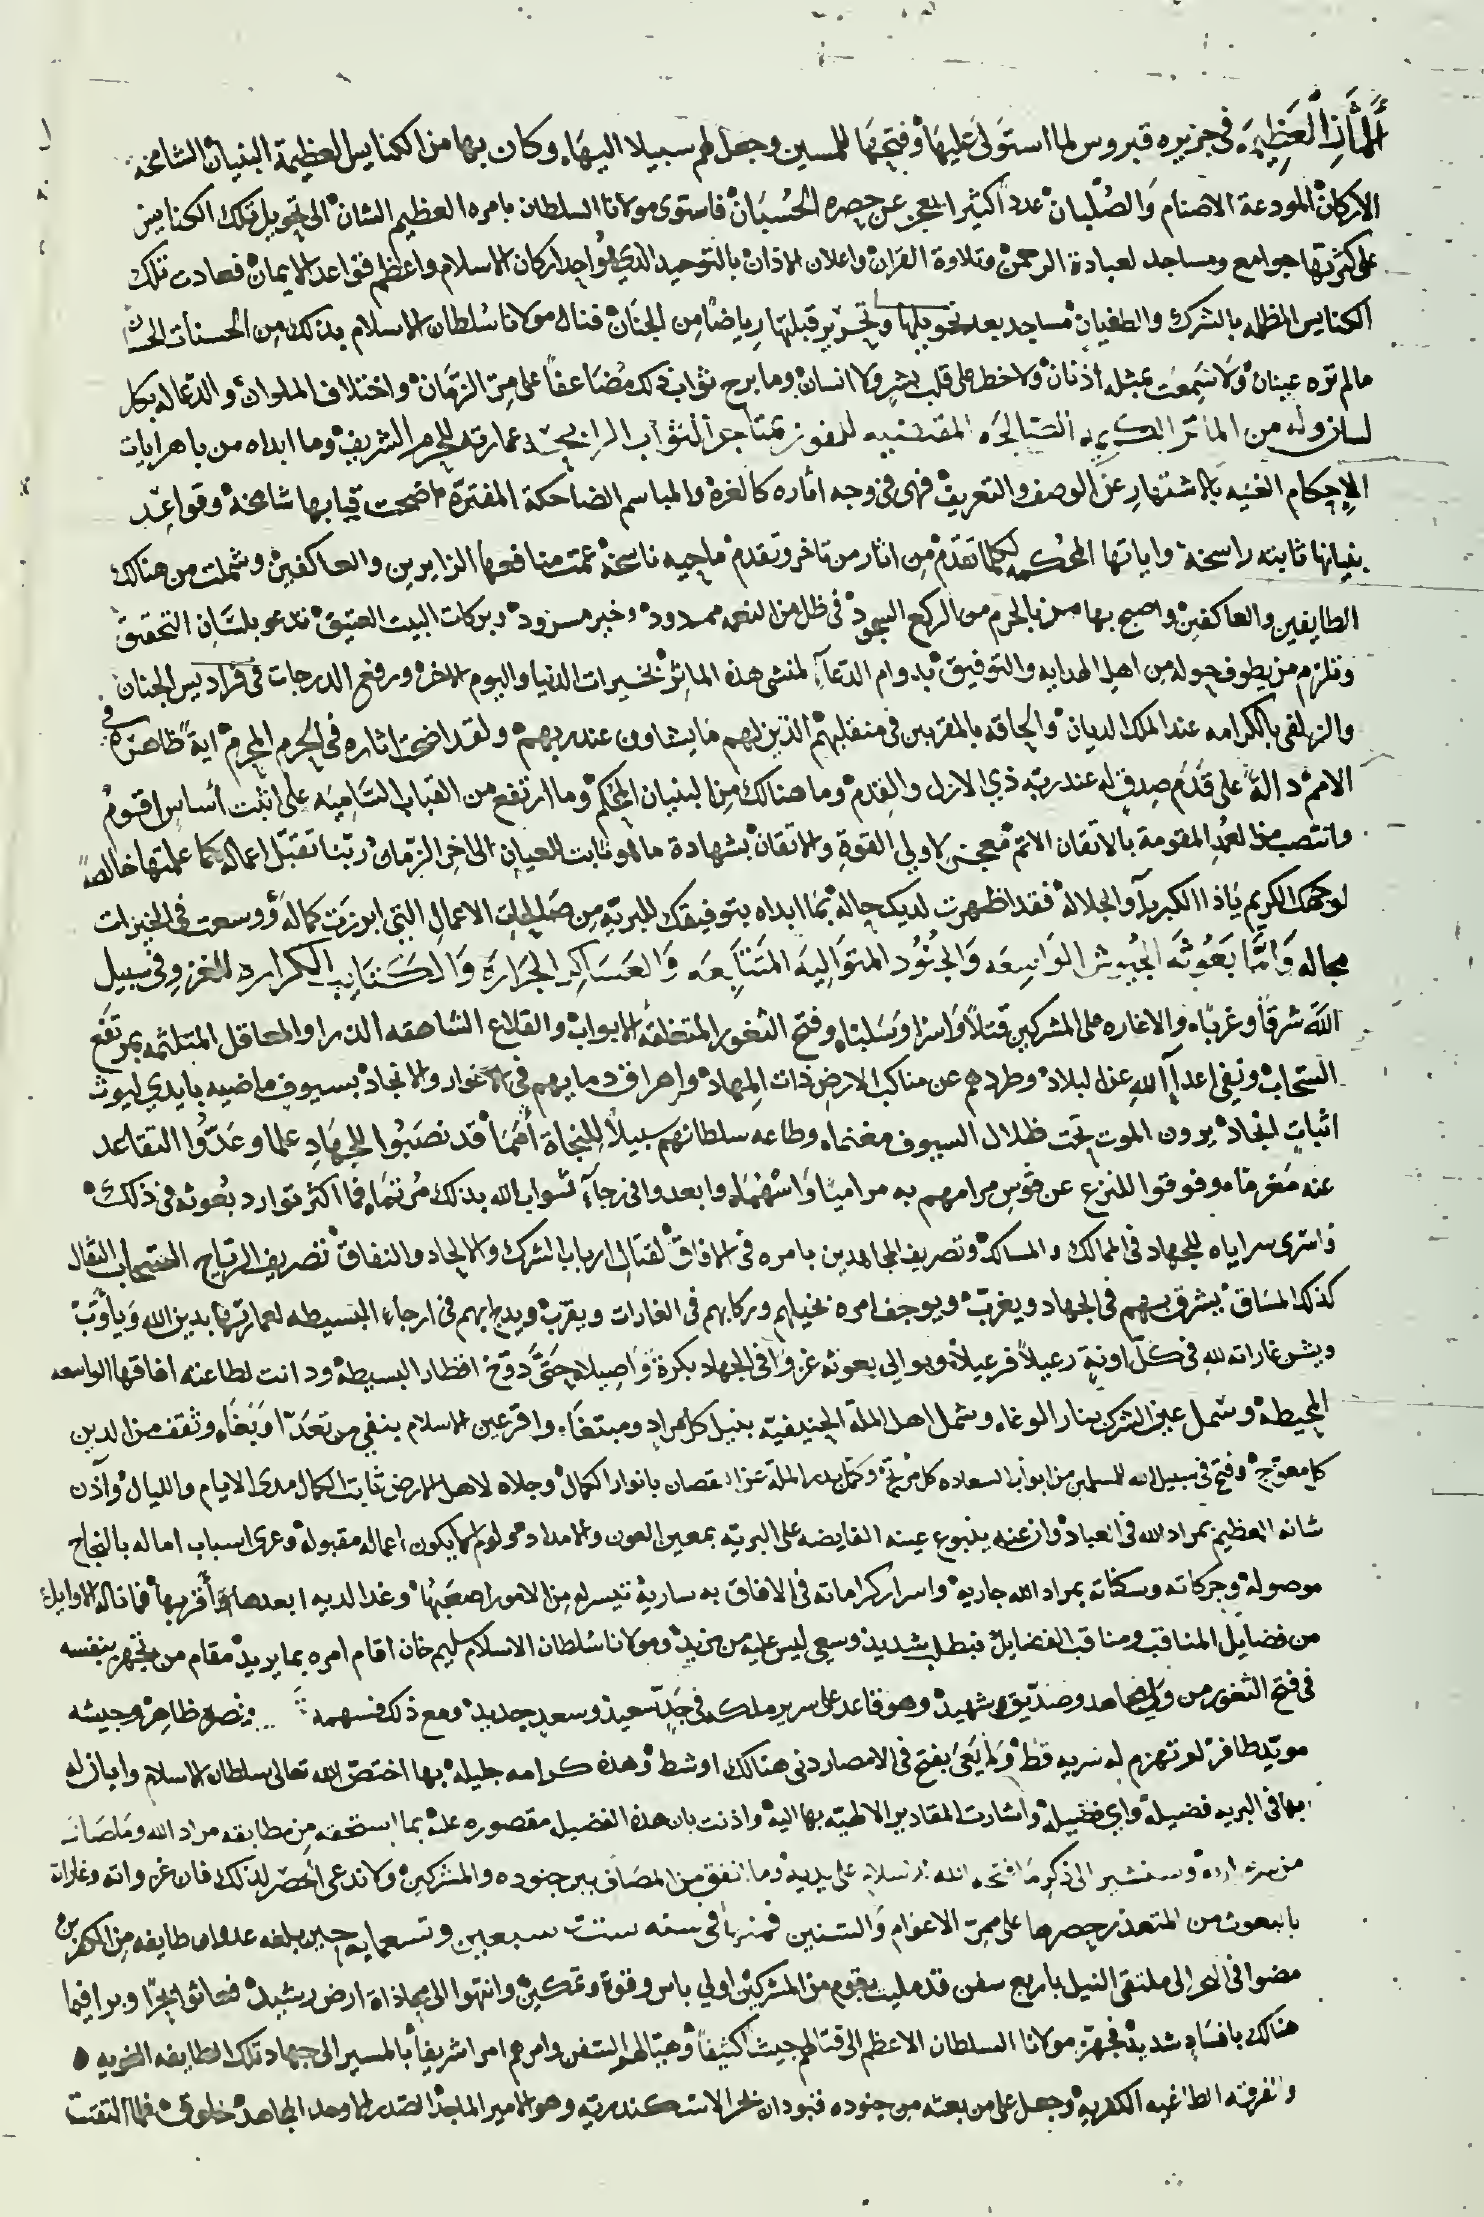 المآثر العظيمه في جزيره قبروس لما استولى عليها وفتحها للمسلمين وجعل لهم سبيلا اليها وكان بها من الكنايس العظيمة البنيان الشامخة
الاركان المودعة الاصنام والصلبان عددا كثيرا يعجز عن حصره الحسبان فاستوى مولانا السلطان بامره العظيم الشان الى تحويل تلك الكنايس
على كثرتها جوامع ومساجد لعبادة الرحمن وتلاوة القران واعلان الاذان بالتوحيد الذي هو احد اركان الاسلام واعظم قواعد الايمان فعادت تلك
الكنايس المظلمه بالشرك والطغيان مساجد بعد تحويلها وتحرير قبلتها رياضا من الجنان فنال مولانا سلطان الاسلام بذلك من الحسنات الحسان
مالم تره عينان ولا سمعت بمثله اذنان ولا خطر على قلب بشر ولا انسان وما برح ثواب ذلك مضاعفا على مر الزمان واختلاف الملوان والدعا له بكل
لسان وله من الماثر الكريمه الصالحه المقتضيه للفوز بمتاجر الثواب الرابحه عمارته للحرم الشريف وما ابداه من باهر ايات
الاحكام الغنيه بالاشتهار عن الوصف والتعريف فهي في وجه اثاره كالغرة والمباسم الضاحكة المفترة اضحت قبابها شامخة وقواعد
بنيانها ثابته راسخة واياتها المحكمه لكلما تقدم من اثار من تاخر وتقدم ماحيه ناسخة عمت منافعها الزايرين والعاكفين وشملت من هنالك
الطايفين والعاكفين واصبح بها من بالحرم من الركع السجود في ظل من النعمه ممدود وخير مسرود وبركات البيت العتيق تدعو بلسان التحقيق
وتلزم من يطوف حوله من اهل الهدايه والتوفيق بدوام الدعا لمنشي هذه الماثر بخيرات الدنيا واليوم الاخر ورفع الدرجات في فراديس الجنان
والزلفى بالكرامه عند الملك الديان والحاقه بالمقربين في منقلبهم الذين لهم ما يشاون عند ربهم ولقد اضحت اثاره في الحرم المحرم اية ظاهرة في
الامم دالة على قدم صدق له عند ربه ذي الازل والقدم وما هنالك من البنيان المحكم وما ارتفع من القباب الساميه على اثبت اساس اقوم
وانتصب من العمد المقومة بالاتقان الاتم معجز لاولي القوة والاتقان بشهادة ما هو ثابت للعيان الى اخر الزمان ربنا تقبل اعماله كما عملتها خالصة
لوجهك الكريم ياذا الكبريا والجلاله فقد اظهرت لديك حاله بما ابداه بتوفيقك للبريه من صالحات الاعمال التي ابرزت كماله ووسعت في الخيرات
مجاله واما بعوثه الجيوش الواسعه والجنود المتواليه المتتابعه والعساكر الجرارة والكتايب الكراره للغزو في سبيل
الله شرقا وغربا والاغاره على المشركين قتلا واسرا وسلبا وفتح الثغور المتغلقه الابواب والقلاع الشاهقه الذرا والمعاقل المتلثمه بمرتفع
السحاب ونفي اعدا الله عن البلاد وطردهم عن مناكب الارض ذات المهاد واهراق دمايهم في الاغوار والانجاد بسيوف ماضيه بايدي ليوث
اثبات انجاد يرون الموت تحت ظلال السيوف مغنما وطاعه سلطانهم سبيلا للنجاة امما قد نصبوا للجهاد علما وعدوا التقاعد
عنه مغرما وفوقوا للنزع عن قوس مرامهم به مراميا واسهما وابعدوا في رجا ثواب الله بذلك مرتما فما اكثر توارد بعوثه في ذلك
واسرى سراياه للجهاد في الممالك والمسالك وتصريف المجاهدين بامره في الافاق لقتال ارباب الشرك والالحاد والنفاق تصريف الرياح السحاب الثقال
كذلك المساق يشرق بهم في الجهاد ويغرب ويوجف امره بخيلهم وركابهم في الغارات ويقرب ويدلج بهم في ارجاء البسيطه لعمارتها بدين الله وياوب
ويشن غاراته لله في كل اونة رعيلا فرعيلا ويوالي بعوثه غزوا في الجهاد بكرة واصيلا حتى دوخ اقطار البسيطه ودانت لطاعته افاقها الواسعه
المحيطه وسمل عين الشرك بنار الوغاء وشمل اهل الملة الحنيفيه بنيل كل مراد ومبتغاء واقر عين الاسلام بنفي من تعدا وبغاء وثقف من الدين
كل معوج وفتح في سبيل الله للمسلمين من ابواب السعاده كل مرتج وكمل بدر الملة عن النقصان بانوار الكمال وجلاه لاهل الارض ثابت الكمال مدى الايام والليال واذن
شانه العظيم بمراد الله في العباد وان عنه ينبوع عينه الفايضه على البريه بمعين العون والامداد ولم لا يكون اعماله مقبولة وعرى اسباب اماله بالنجاح
موصوله وحركاته وسكناته بمراد الله جاريه واسرار كراماته في الافاق به سارية تيسر له من الامور اصعبها وغدا لديه ابعدها اقربها فما ناله الاوايل
من فضايل المناقب ومناقب الفضايل فبطلب شديد وسعي ليس عليه من مزيد ومولانا سلطان الاسلام سليم خان اقام امره بما يريد مقام من يجهز بنفسه
في فتح الثغور من ولي مجاهد وصديق وشهيد وهو قاعد على سرير ملكه في جد سعيد وسعد جديد ومع ذلك فسهمه بنصره ظاهر وجيشه
مويد ظافر لم تهزم له سريه قط ولم يعي بفتح في الامصار دنى هنالك او شط وهذه كرامه جليله بها اختص الله تعالى سلطان الاسلام وابان له
بها في البريه فضيلة واي فضيله واشارت المقادير الالهيه بها اليه واذنت بان هذه الفضيله مقصوره عليه بما استحقه من مطابقه مراد الله وما صار
وسنشير الى ذكر ما فتحه الله للاسلام على يديه وما اتفق من المصاف بين جنوده والمشركين ولا ندعى الحصر لذلك فان غزواته وغاراته
بالبعوث من المتعذر حصرها على ممر الاعوام والسنين فمنها في سنه ست سبعين وتسعمايه حين بلغه عدوان طايفه من الكفرين
مضوا في البحر الى ملتقى النيل باربع سفن قد مليت بقوم من المشركين اولي باس وقوة وتمكين وانتهوا الى محاذاة ارض رشيد فعاثوا بحرا وبرا فيما
هنالك بافساد شديد فجهز مولانا السلطان الاعظم الى قتالهم جيشا كثيفا وهيا لهم السفن وامرهم امرا شريفا بالمسير الى جهاد تلك الطايفه الغويه
والفرقه الطاغيه الكفريه وجعل على من بعثه من جنوده قبودان بحر الاسكندريه وهو الامير الماجد الصدر الاوحد المجاهد فلما التقتا